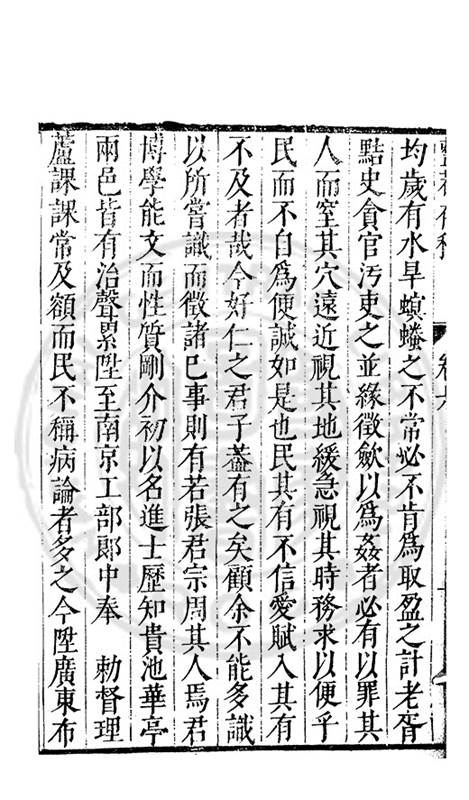 均歲有水旱螟蟊之不常必不肯為取盈之計老胥
黠史貪官汚吏之並緣徵歛以為姦者必有以罪其
人而窒其穴遠近視其地緩急視其時務求以便乎
民而不自為便誠如是也民其有不信愛賦入其有
不及者哉今好仁之君子葢有之矣顧余不能多識
以所嘗識而徵諸已事則有若張君宗周其人焉君
博學能文而性質剛介初以名進士歷知貴池華亭
兩邑皆有治聲累陞至南京工部郎中奉　勅督理
蘆課課常及額而民不稱病論者多之今陞廣東布